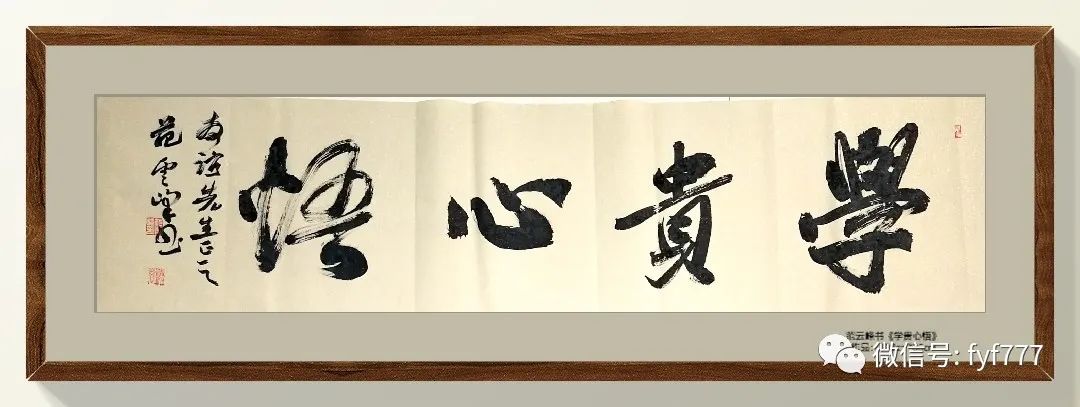 學貴心悟
友谊先生正之
范云峰书
范云峰书《学贵心悟》
微信号: fyf777